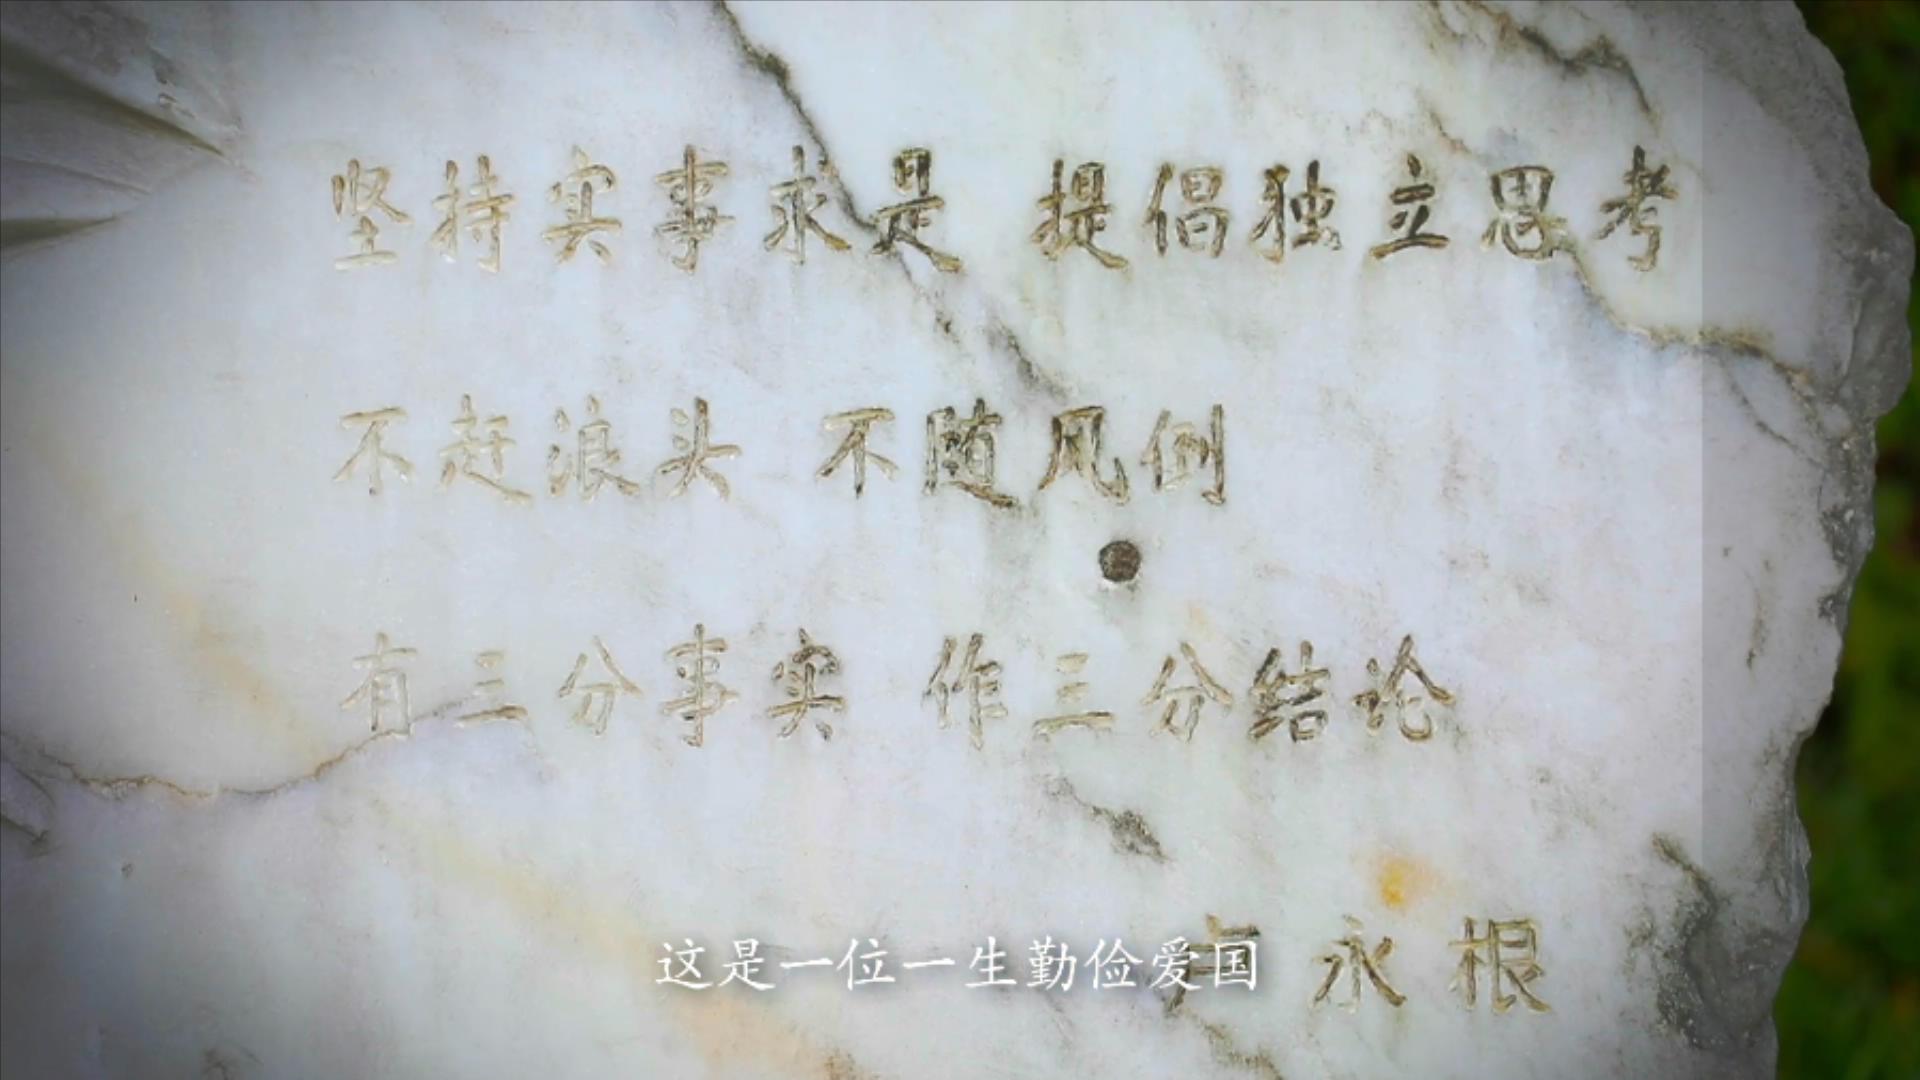 坚持实事求是 提倡独立思考
不赶浪头 不随风倒
有三分事实 作三分结论
卢永根
这是一位一生勤俭爱国